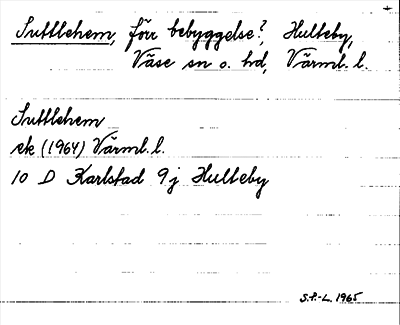 Suttlehem, förr bebyggelse?, Hulteby,
Väse sn o. hd, Värml. l.
Suttlehem
ek (1964) Värml. l.
10 D Karlstad 9j Hulteby
S.P.-L. 1965